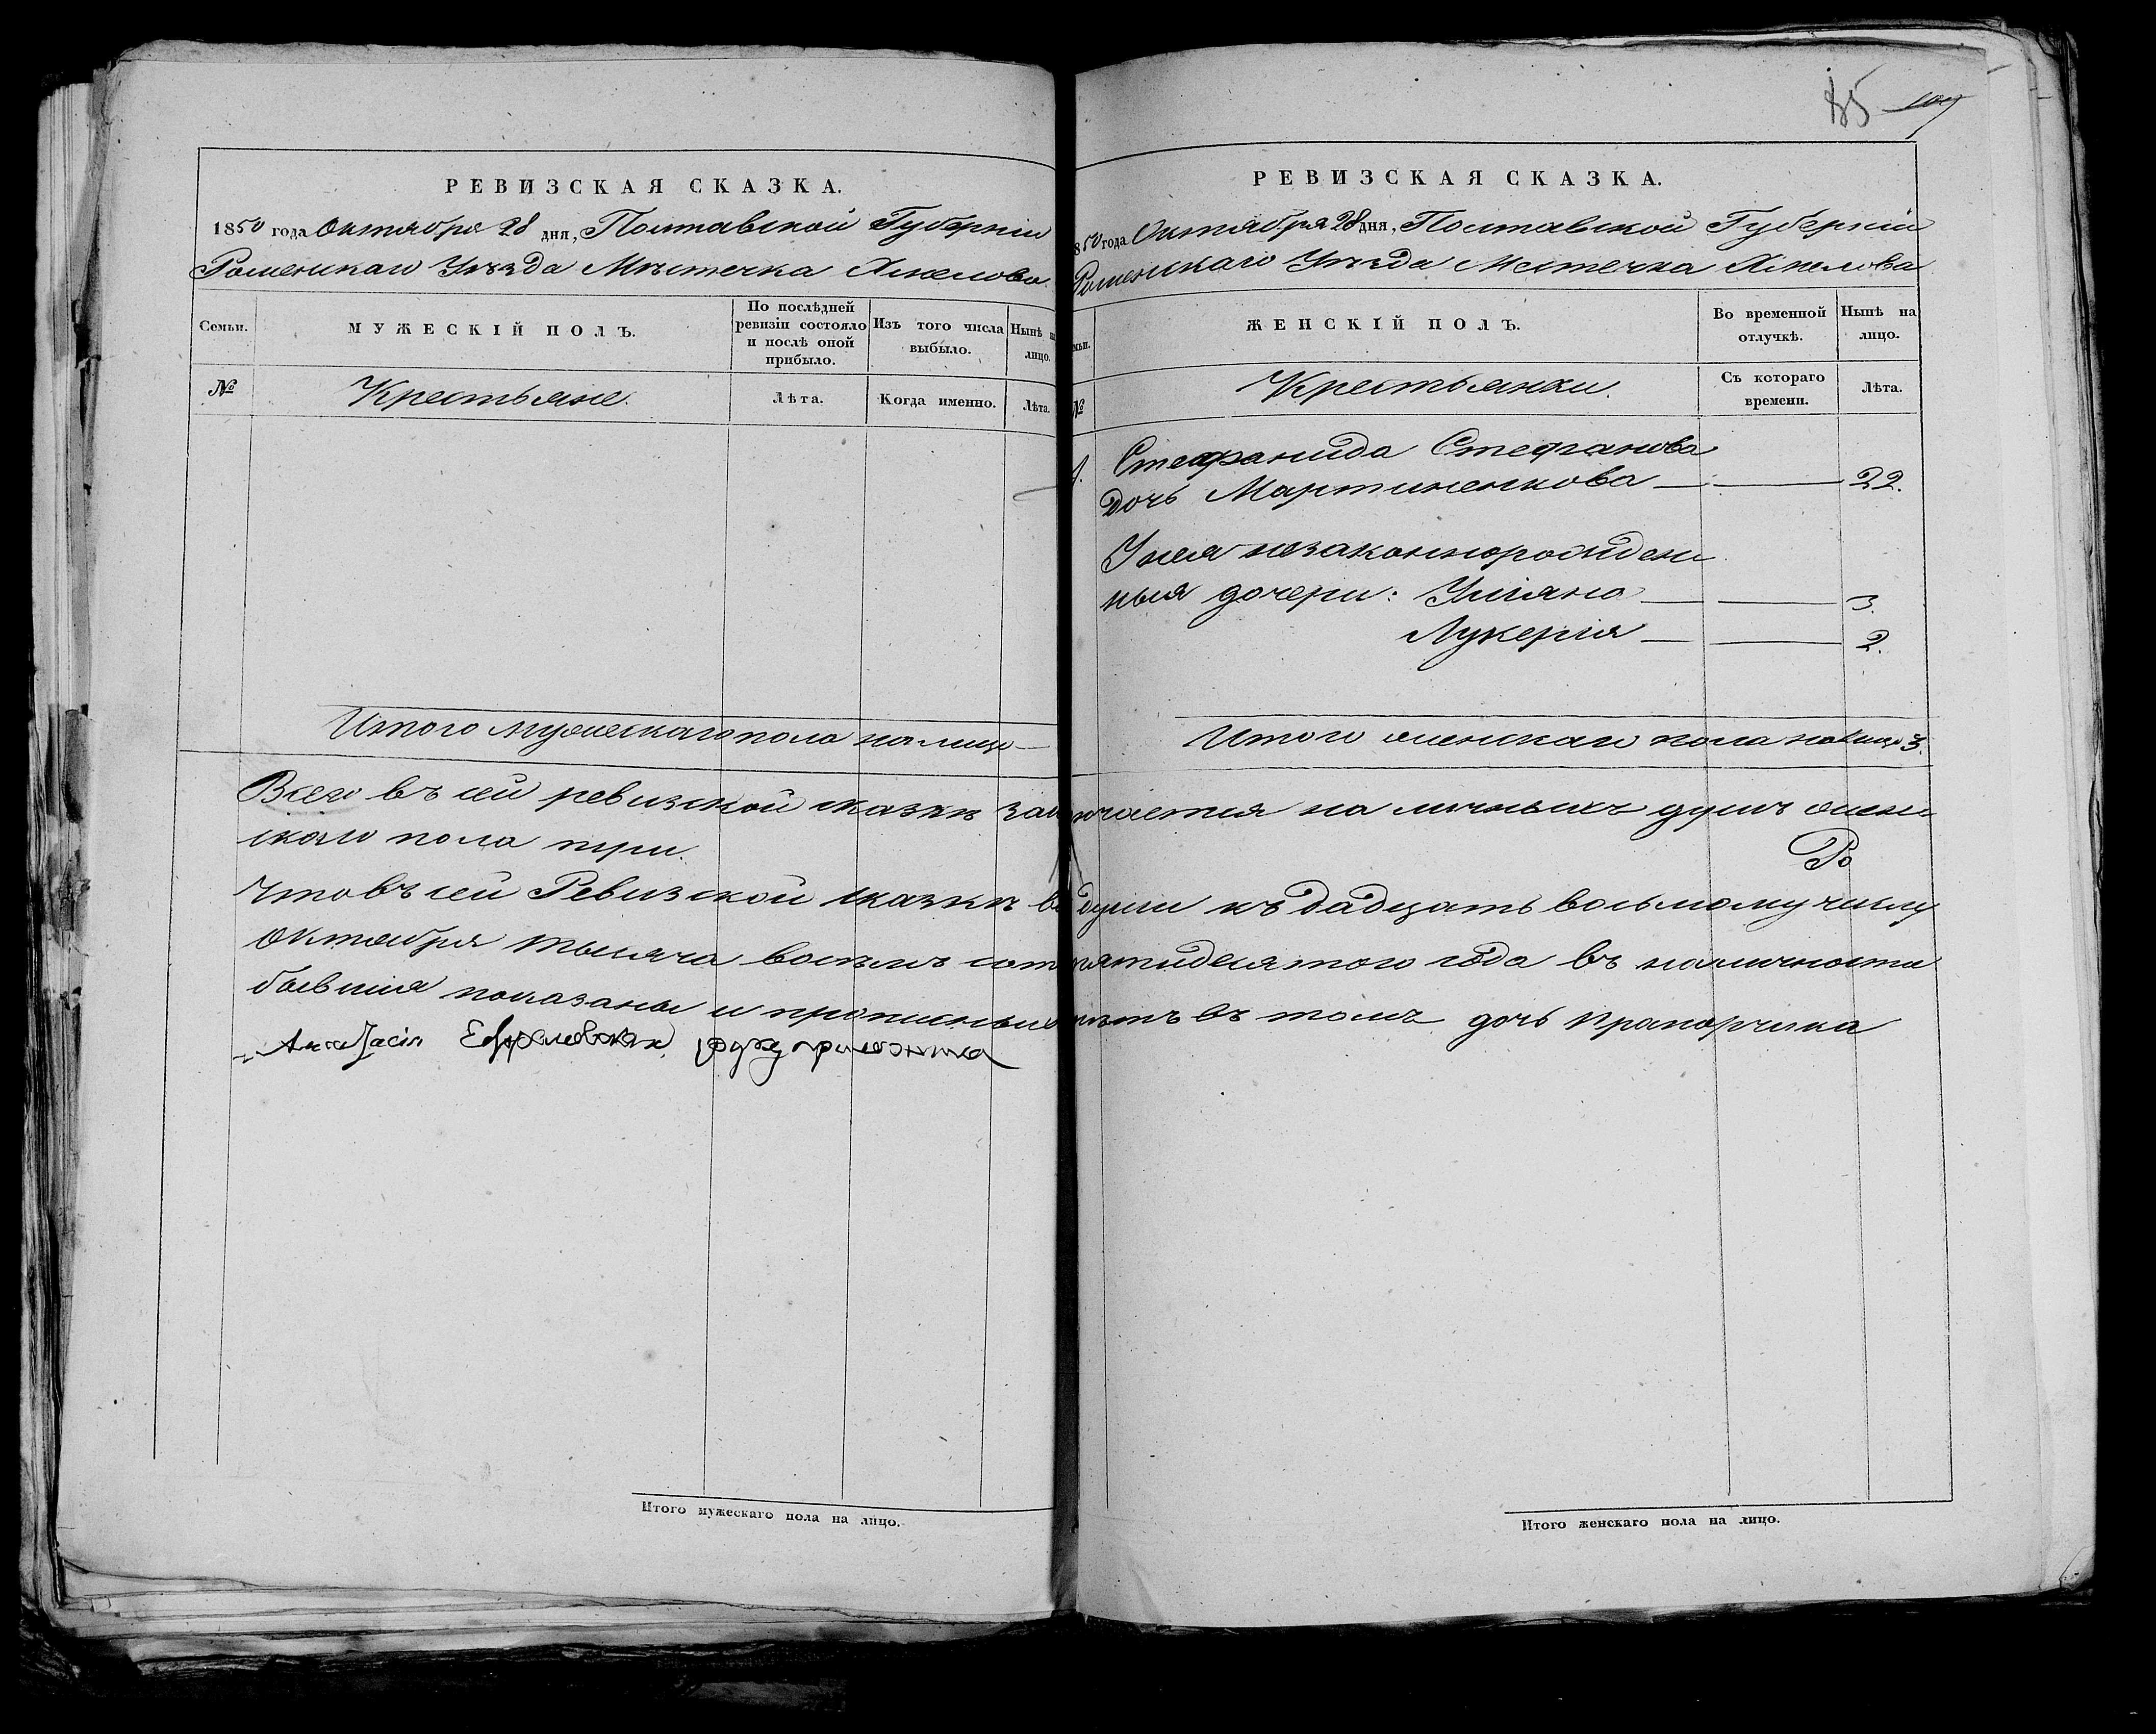 РЕВИЗСКАЯ СКАЗКА.
1850 года Октября 28 дня, Полтавской Губерніи
Роменскаго Уѣзда Мѣстечка Хмелова
Семьи.
МУЖЕСКІЙ ПОЛЪ.
По послѣдней ревизіи состояло и послѣ оной прибыло.
Изъ того числа выбыло.
Нынѣ на лицо.
№
Крестьяне.
Лѣта.
Когда именно.
Лѣта.
Итого мужескаго пола на лицо —
85 109
РЕВИЗСКАЯ СКАЗКА.
1850 года Октября 28 дня, Полтавской Губерніи
Роменскаго Уѣзда Местечка Хмелова
ЖЕНСКІЙ ПОЛЪ.
Во временной отлучкѣ.
Нынѣ на лицо.
№
Крестьянки.
Съ котораго времени.
Лѣта.
1. Стефанида Стефанова
дочь Мартиненкова — — 22.
У нея незаконнорожден
ныя дочери: Уліяна — — 3.
Лукерія — — 2.
Итого женскаго пола на лицо 3.
Всего въ сей ревизской сказкѣ заключается на личныхъ душъ женс
каго пола три.
Что въ сей Ревизской сказкѣ души къ дадцать восьмому числу
Октября тысяча восемь сотъ пятидесятого года въ наличности
бывшия показаны и прописныхъ нѣтъ въ томъ дочь прапорчика
Анастасія руку приложила
Итого мужескаго пола на лицо.
Итого женскаго пола на лицо.